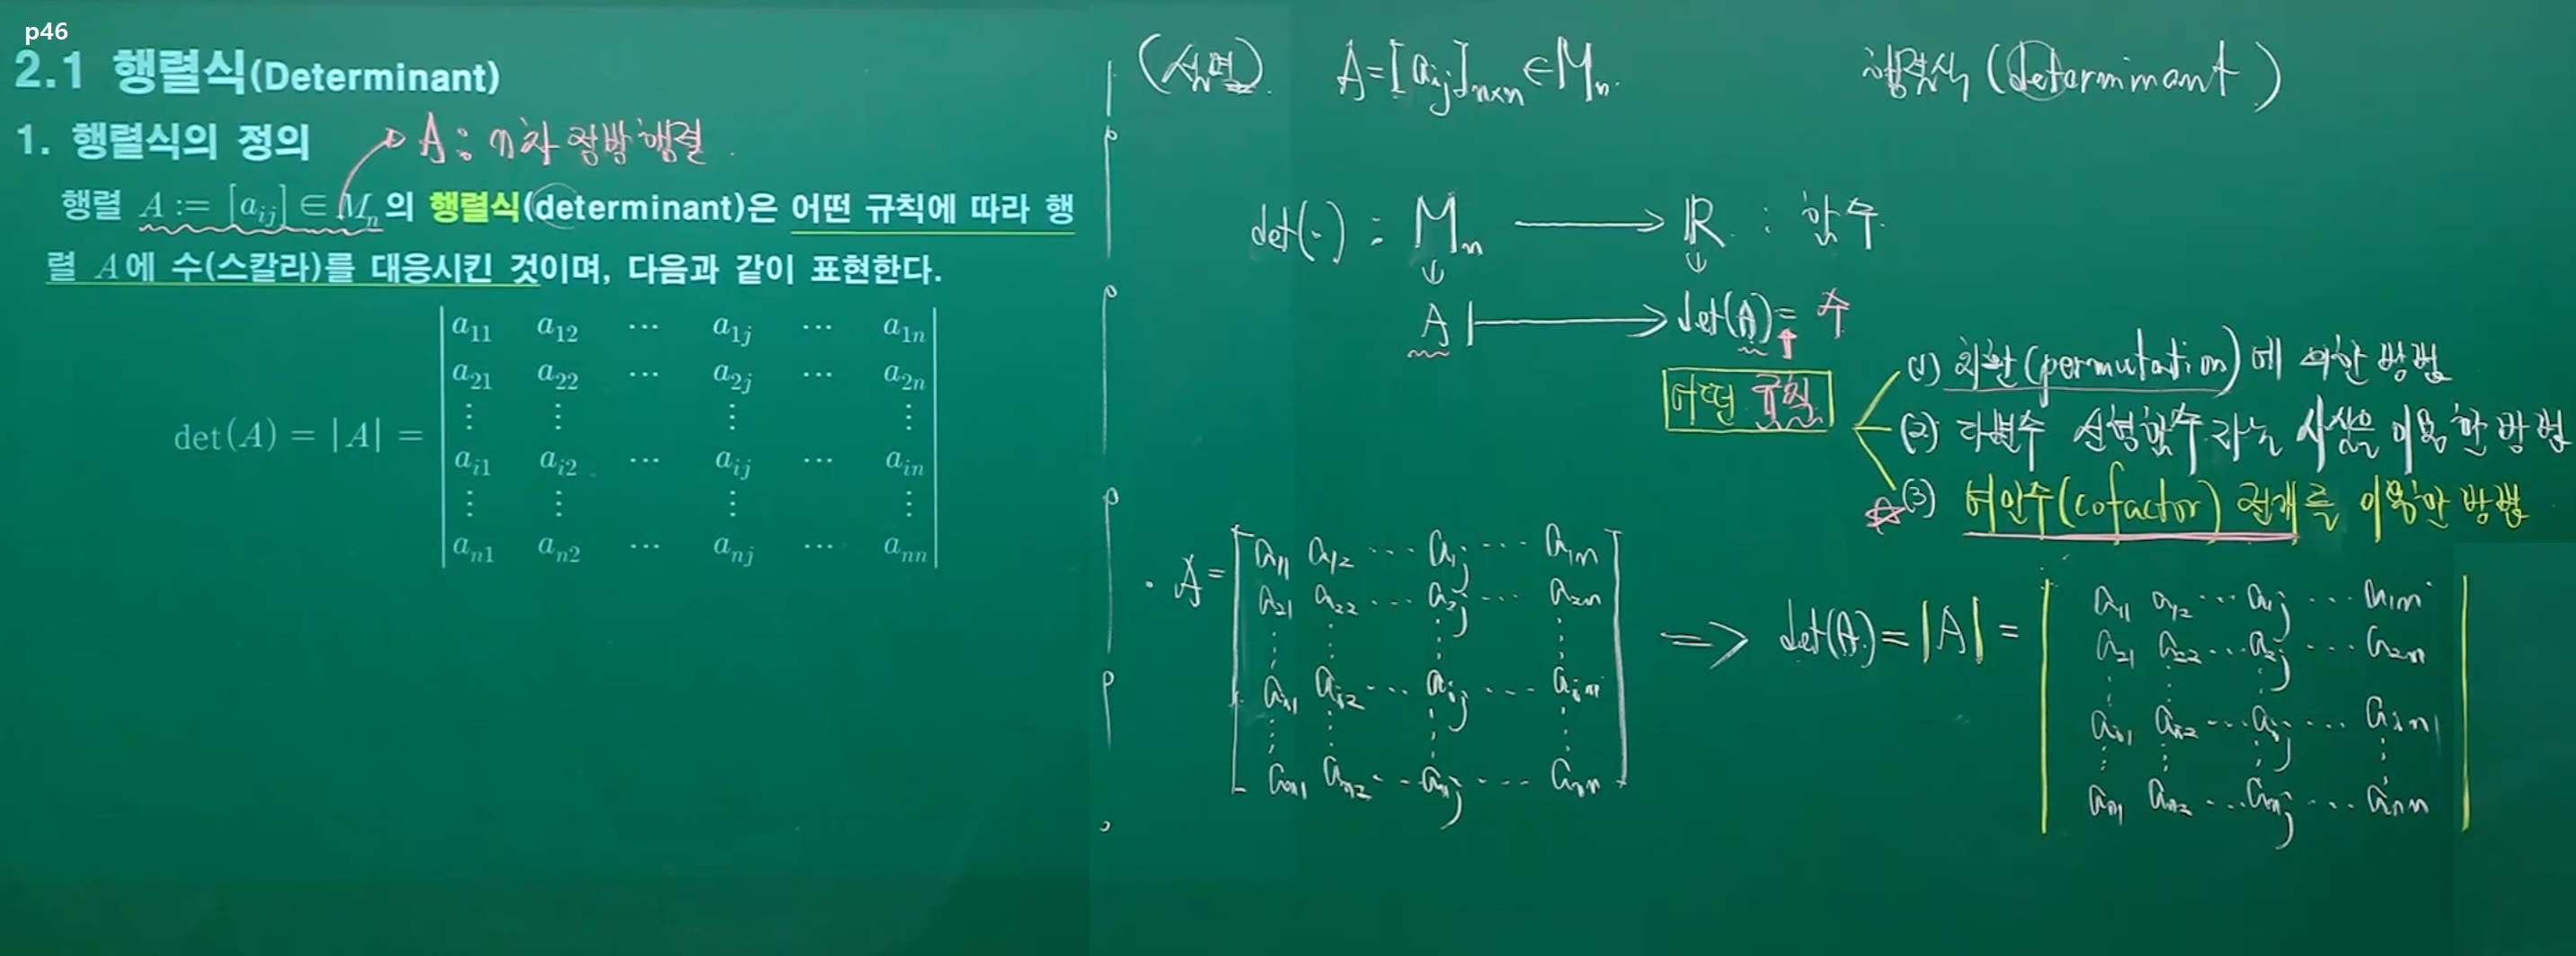 p46
2.1 행렬식(Determinant)
1. 행렬식의 정의
A : n차 정방행렬
행렬 A := [a_{ij}] ∈ M_n의 행렬식(determinant)은 어떤 규칙에 따라 행
렬 A에 수(스칼라)를 대응시킨 것이며, 다음과 같이 표현한다.
a_{11} a_{12} ⋯ a_{1j} ⋯ a_{1n}
a_{21} a_{22} ⋯ a_{2j} ⋯ a_{2n}
⋮ ⋮ ⋮ ⋮
det(A) = |A| =
a_{i1} a_{i2} ⋯ a_{ij} ⋯ a_{in}
⋮ ⋮ ⋮ ⋮
a_{n1} a_{n2} ⋯ a_{nj} ⋯ a_{nn}
(설명) A = [a_{ij}]_{n×n} ∈ M_n. 행렬식 (determinant)
det(·) : M_n → ℝ : 함수
↓ ↓
A ↦ det(A) = 수
↑
어떤 규칙
(1) 치환(permutation)에 의한 방법
(2) 다변수 선형함수라는 사실을 이용한 방법
☆(3) 여인수(cofactor) 전개를 이용한 방법
· A =
a_{11} a_{12} ⋯ a_{1j} ⋯ a_{1n}
a_{21} a_{22} ⋯ a_{2j} ⋯ a_{2n}
⋮ ⋮ ⋮ ⋮
a_{i1} a_{i2} ⋯ a_{ij} ⋯ a_{in}
⋮ ⋮ ⋮ ⋮
a_{n1} a_{n2} ⋯ a_{nj} ⋯ a_{nn}
⇒ det(A) = |A| =
a_{11} a_{12} ⋯ a_{1j} ⋯ a_{1n}
a_{21} a_{22} ⋯ a_{2j} ⋯ a_{2n}
⋮ ⋮ ⋮ ⋮
a_{i1} a_{i2} ⋯ a_{ij} ⋯ a_{in}
⋮ ⋮ ⋮ ⋮
a_{n1} a_{n2} ⋯ a_{nj} ⋯ a_{nn}